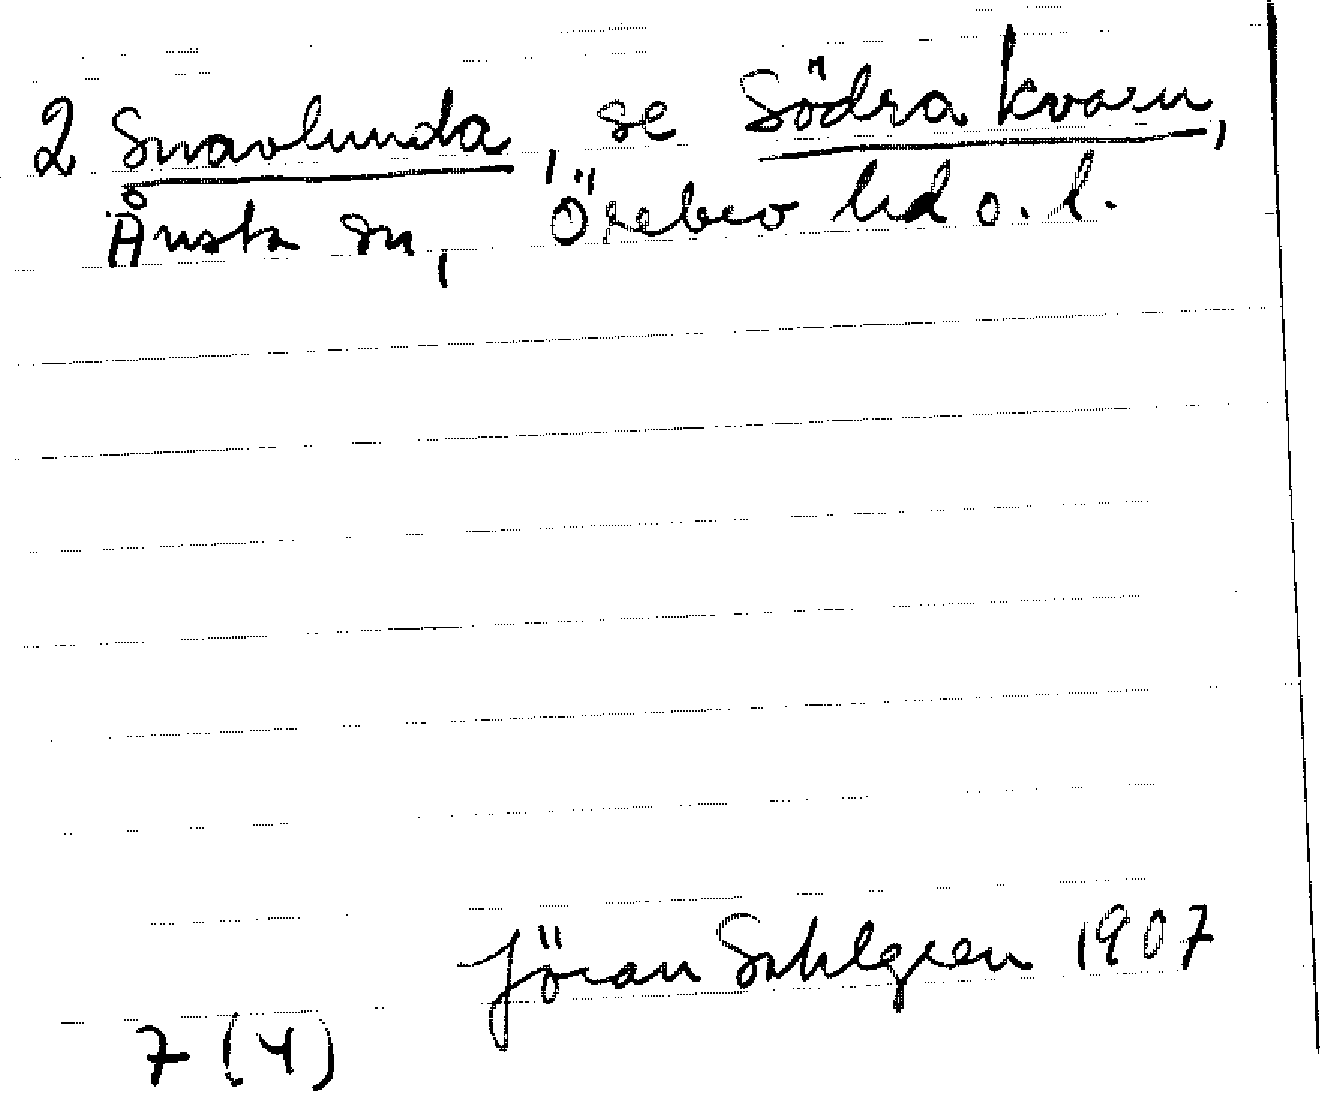 2 Snavlunda, se Södra kvarn,
Ånsta sn, Örebro hd o. l.
Jöran Sahlgren 1907
7 (4)